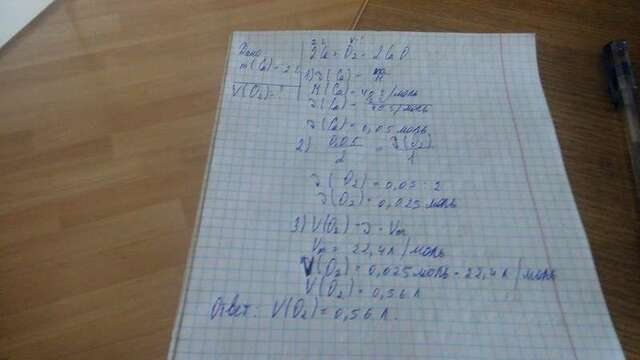 Дано
m(Ca) = 2 г
V(O₂) = ?
2Ca + O₂ = 2CaO
1) ν(Ca) = m/M
M(Ca) = 40 г/моль
ν(Ca) =
ν(Ca) = 0,05 моль
2) 0,05/2 = ν(O₂)/1
ν(O₂) = 0,05 : 2
ν(O₂) = 0,025 моль
3) V(O₂) = ν · Vm
Vm = 22,4 л/моль
V(O₂) = 0,025 моль · 22,4 л/моль
V(O₂) = 0,56 л
Ответ: V(O₂) = 0,56 л.